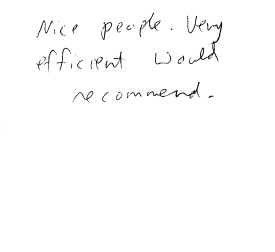 Nice people. Very
efficient would
recommend.